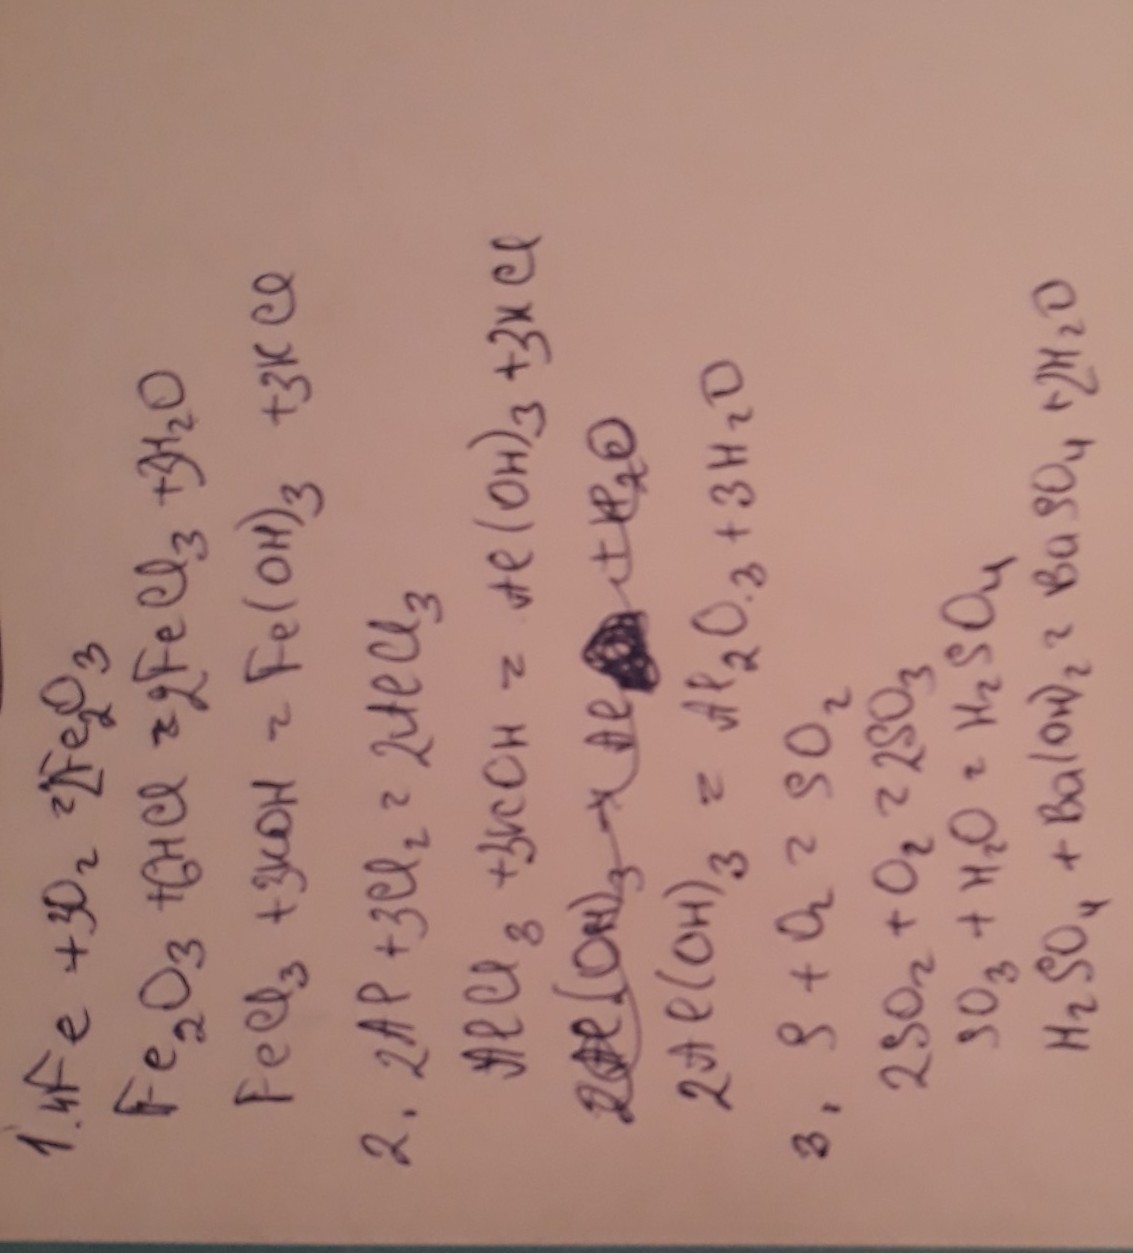 1. 4Fe + 3O₂ = 2Fe₂O₃
Fe₂O₃ + 6HCl = 2FeCl₃ + 3H₂O
FeCl₃ + 3KOH = Fe(OH)₃ + 3KCl
2. 2Al + 3Cl₂ = 2AlCl₃
AlCl₃ + 3KOH = Al(OH)₃ + 3KCl
2Al(OH)₃ → Al + H₂O
2Al(OH)₃ = Al₂O₃ + 3H₂O
3. S + O₂ = SO₂
2SO₂ + O₂ = 2SO₃
SO₃ + H₂O = H₂SO₄
H₂SO₄ + Ba(OH)₂ = BaSO₄ + 2H₂O